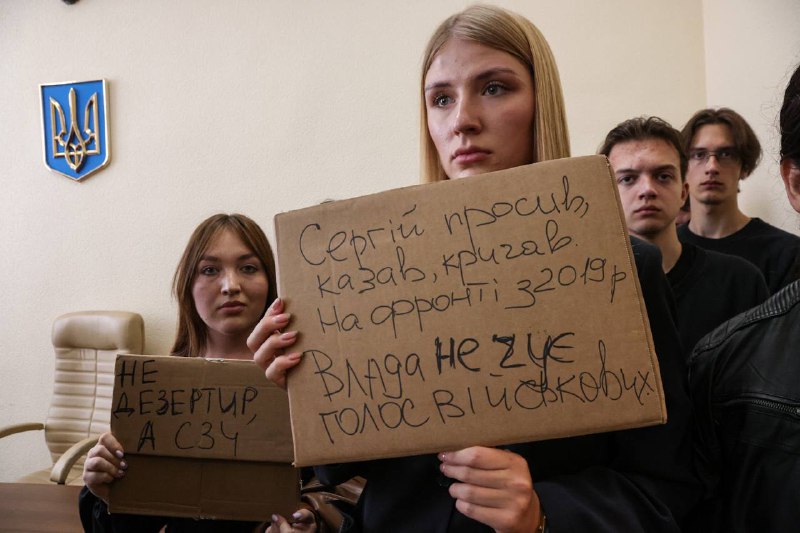 Сергій просив,
казав, кричав.
На фронті з 2019 р
Влада не чує
голос військових.
НЕ
ДЕЗЕРТИР,
А СЗЧ